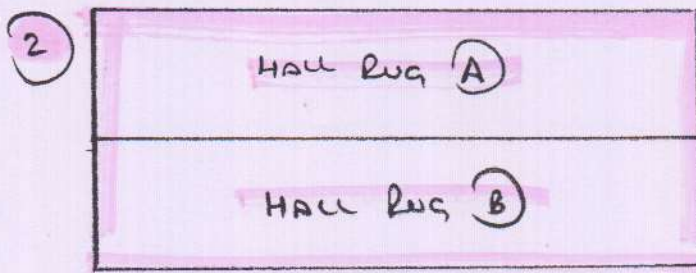 2
HALL RUG A
HALL RUG B